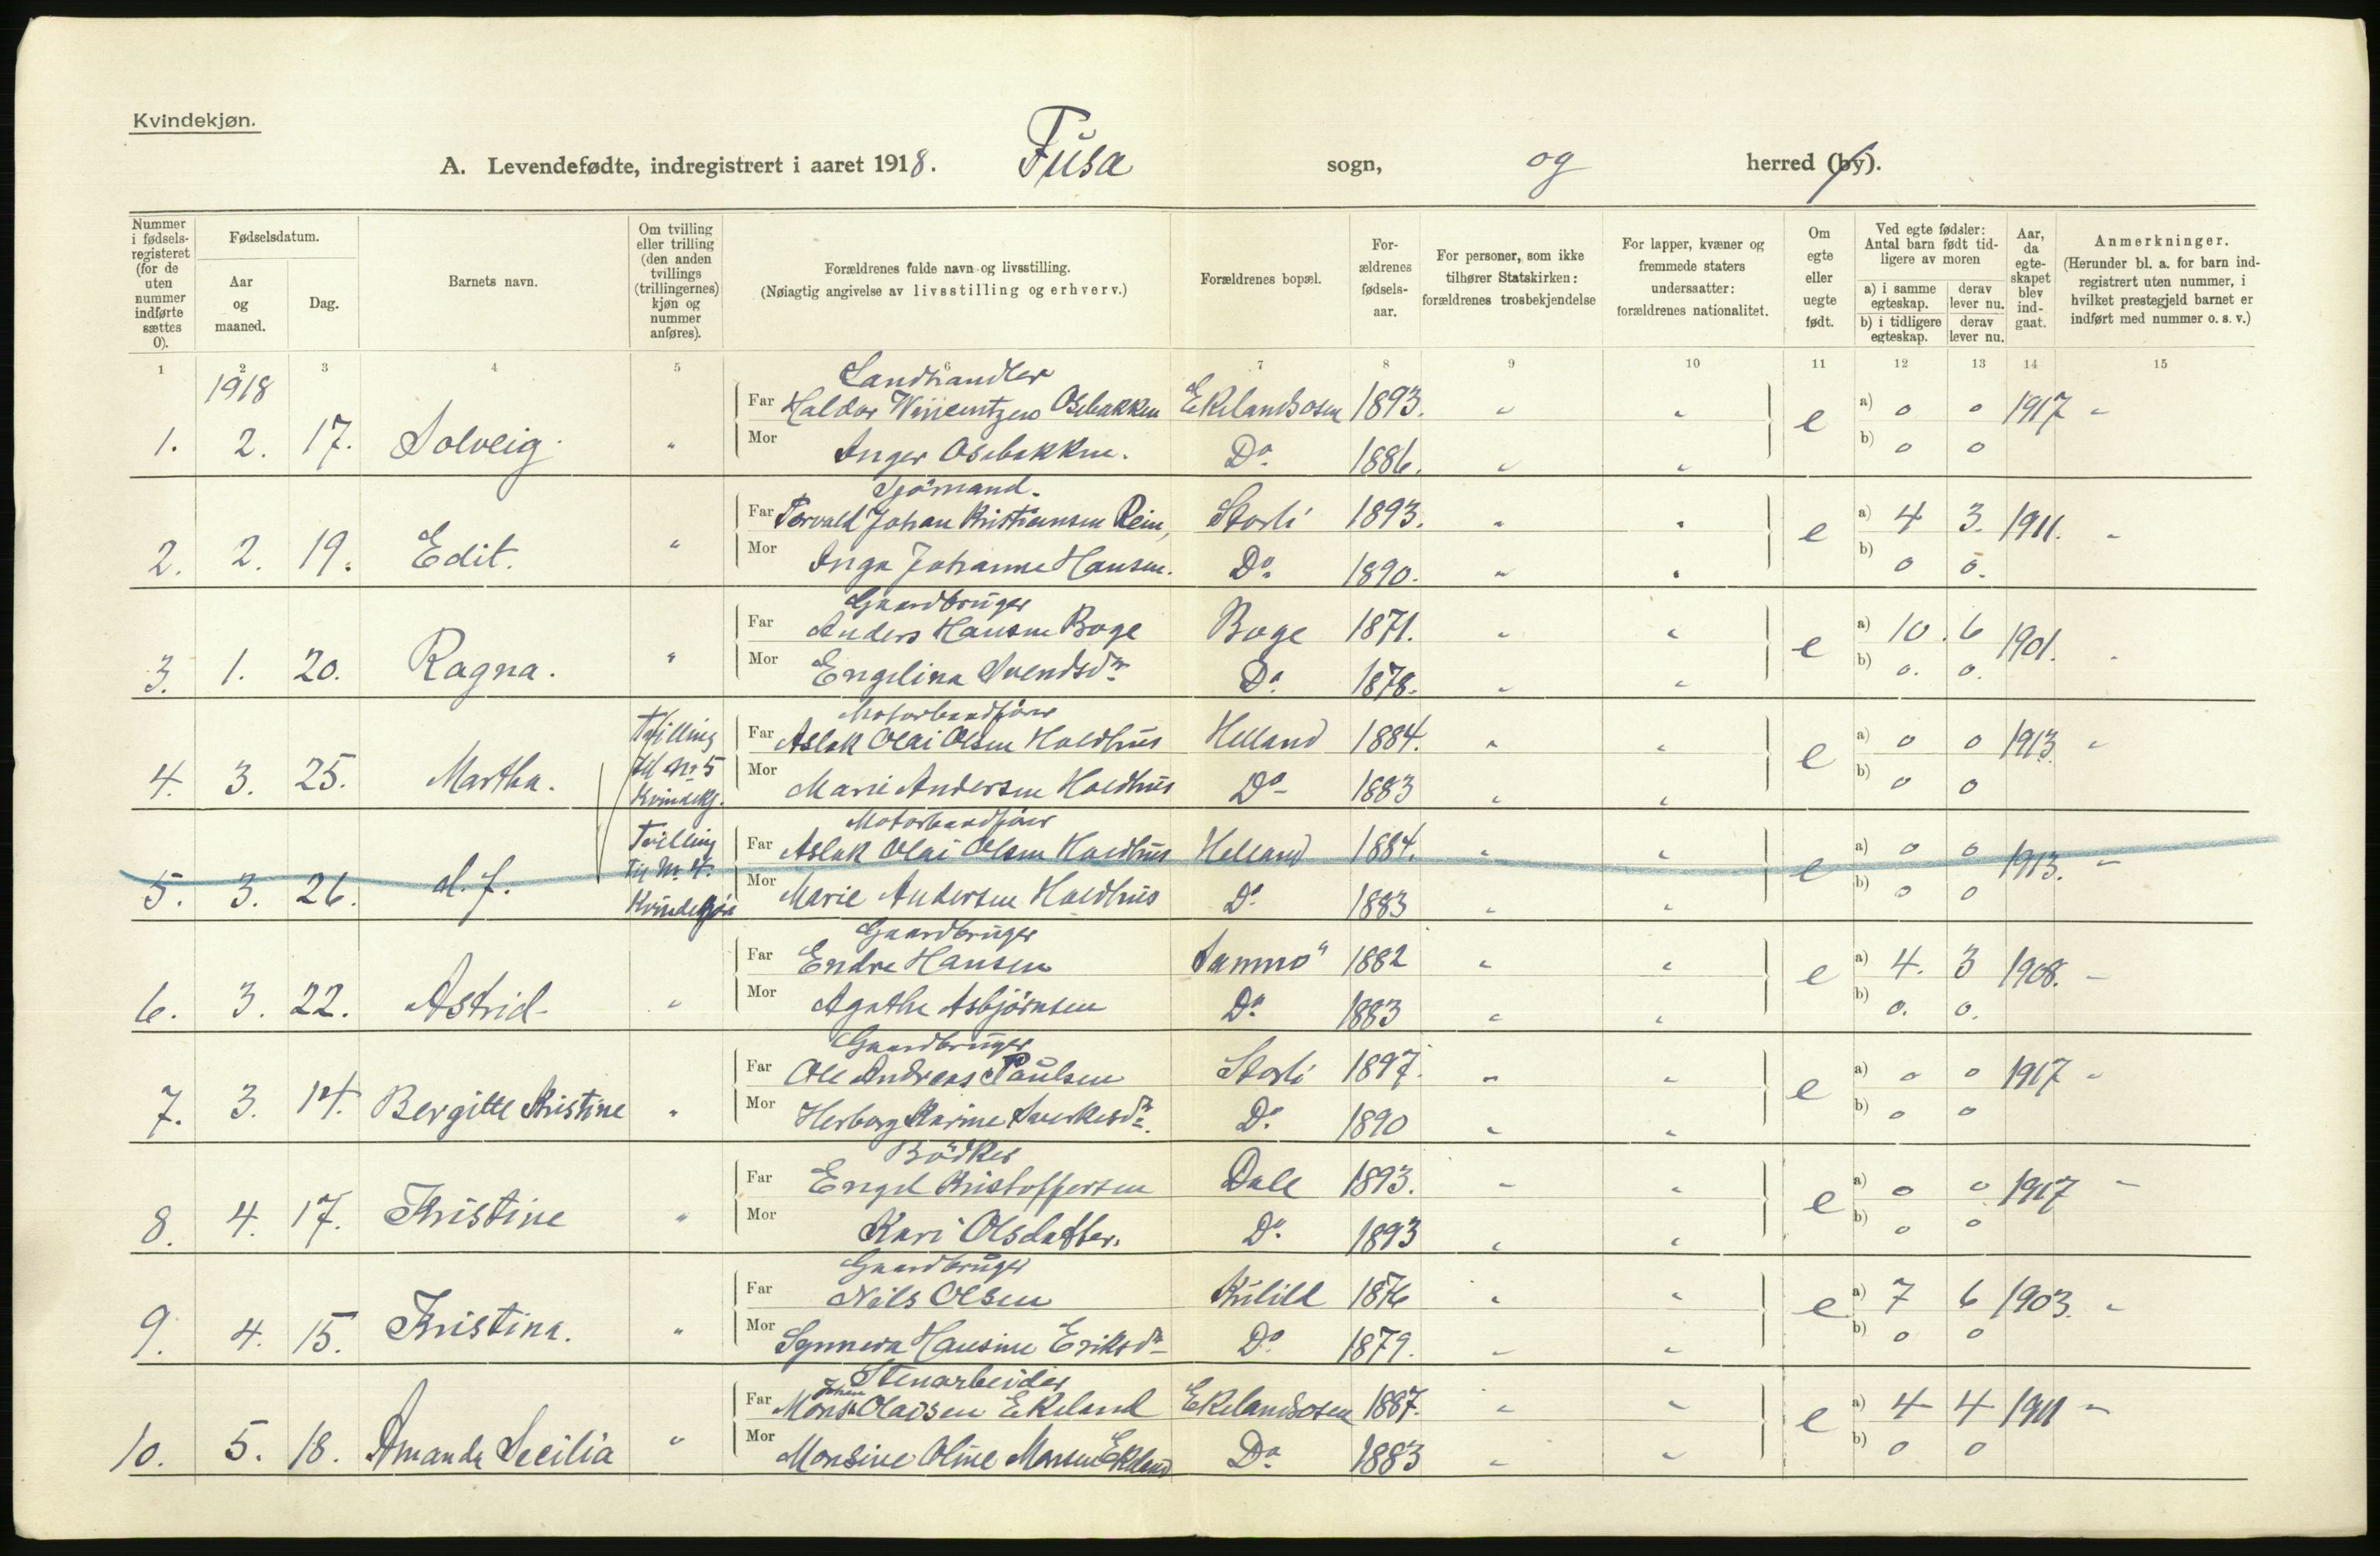 Kvindekjøn.
A. Levendefødte, indregistrert i aaret 1918. Fusa sogn, og herred (by).
Nummer i fødsels-registeret (for de uten nummer indførte sættes 0).
Fødselsdatum.
Aar og maaned.
Dag.
Barnets navn.
Om tvilling eller trilling (den anden tvillings (trillingernes) kjøn og nummer anføres).
Forældrenes fulde navn og livsstilling.
(Nøiagtig angivelse av livsstilling og erhverv.)
Forældrenes bopæl.
For-ældrenes fødsels-aar.
For personer, som ikke tilhører Statskirken: forældrenes trosbekjendelse
For lapper, kvæner og fremmede staters undersaatter: forældrenes nationalitet.
Om egte eller uegte født.
Ved egte fødsler: Antal barn født tid-ligere av moren
a) i samme egteskap. derav lever nu.
b) i tidligere egteskap. derav lever nu.
Aar, da egte-skapet blev ind-gaat.
Anmerkninger.
(Herunder bl. a. for barn ind-registrert uten nummer, i hvilket prestegjeld barnet er indført med nummer o. s. v.)
1 2 3 4 5 6 7 8 9 10 11 12 13 14 15
1918
Landhandler
Far Haldor Vincentzen Osebakken Ekelandsosen 1893. " " e a) 0 0 1917 "
1. 2. 17. Solveig. " Mor Inger Osebakken. Do. 1886. " " b) 0 0
Sjömand.
Far Torvald Johan Kristiansen Rein, Storli 1893. " " e a) 4 3. 1911. "
2. 2. 19. Edit. " Mor Inga Johanne Hansen. Do. 1890. " " b) 0 0.
Gaardbruger
Far Anders Hansen Boge Boge 1871. " " e a) 10. 6 1901. "
3. 1. 20. Ragna. " Mor Engelina Svendsdr. Do. 1878. " " b) 0. 0.
Motorbaadförer
Tvilling Far Aslak Olai Olsen Holdhus Helland 1884. " " e a) 0 0 1913. "
4. 3. 25. Martha. til No 5 Kvindekj. Mor Marie Andersen Holdhus Do. 1883 " " b) 0 0
Motorbaadförer
Tvilling Far Aslak Olai Olsen Holdhus Helland 1884. " " e a) 0 0 1913. "
5. 3. 26. d. f. til No. 4. Kvindekjön Mor Marie Andersen Holdhus Do. 1883 " " b) 0 0
Gaardbruger
Far Endre Hansen Samnö 1882 " " e a) 4. 3 1908. "
6. 3. 22. Astrid " Mor Agathe Asbjörnsen Do. 1883 " " b) 0. 0.
Gaardbruger
Far Ole Andreas Paulsen Storli 1897. " " e a) 0 0 1917 "
7. 3. 14. Bergitte Kristine " Mor Herborg Karine Sverkesdr. Do. 1890 " " b) 0 0
Bödker
Far Engel Kristoffersen Dale 1893. " " e a) 0 0 1917 "
8. 4. 17. Kristine " Mor Kari Olsdatter. Do. 1893 " " b) 0 0
Gaardbruger
Far Nils Olsen Kulild 1876 " " e a) 7 6 1903. "
9. 4. 15. Kristina. " Mor Synneva Hansine Eriksdr. Do. 1879. " " b) 0 0
Stenarbeider
Johan
Far Mons Olaisen Ekeland Ekelandsosen 1887. " " e a) 4 4 1911 "
10. 5. 18. Amanda Secilia " Mor Monsine Oline Monsen Ekeland Do. 1883 " " b) 0 0